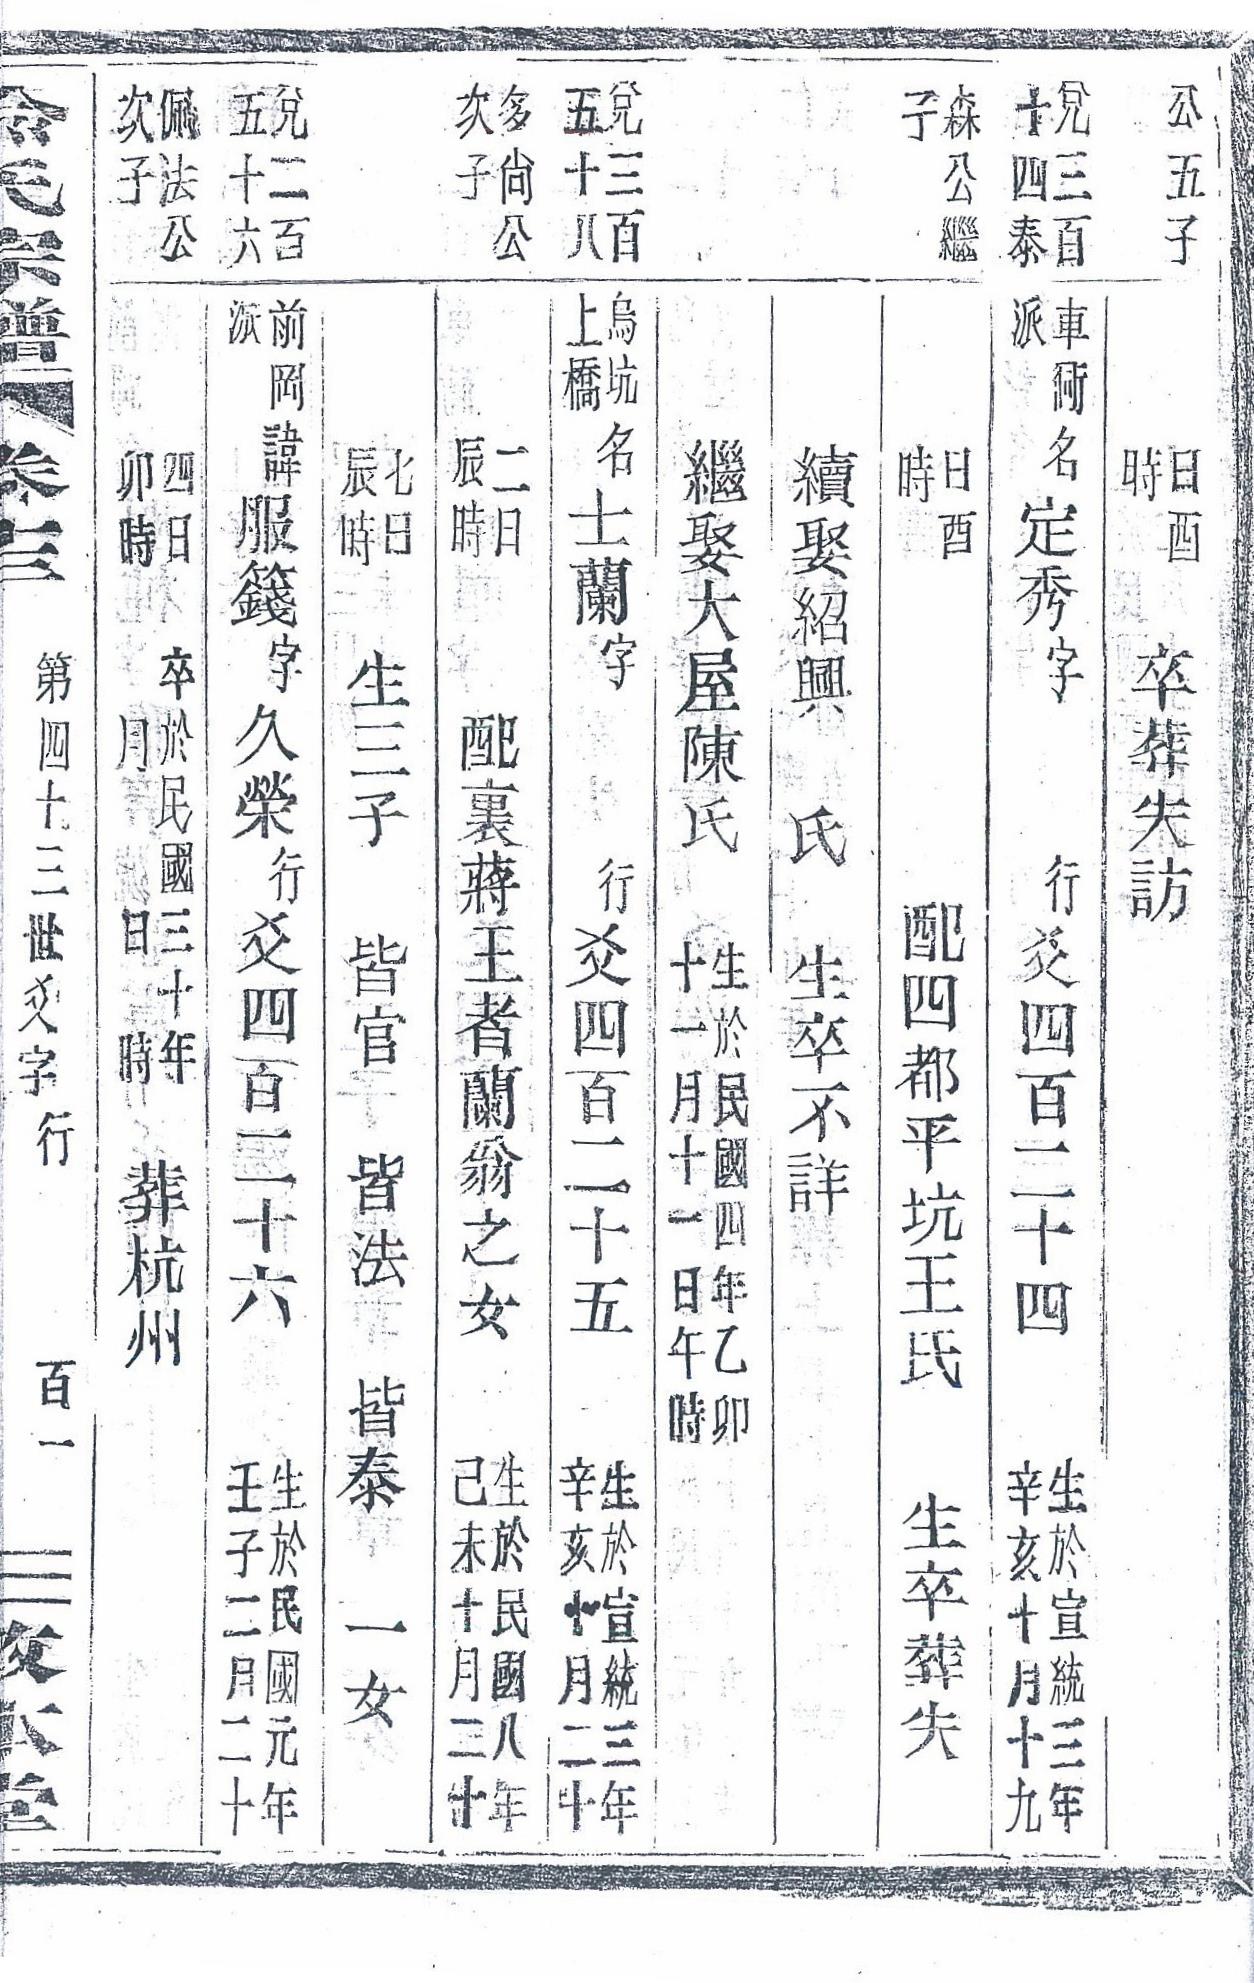 公五子
日酉
時
卒葬失訪
兌三百
十四泰
車衕名
派
定秀字
行爻四百二十四
生於宣統三年
辛亥十月十九
森公繼
子
日酉
時
配四都平坑王氏
生卒葬失
續娶紹興 氏 生卒不詳
繼娶大屋陳氏
生於民國四年乙卯
十一月十一日午時
兌三百
五十八
烏坑
上橋
名士蘭字
行爻四百二十五
生於宣統三年
辛亥十月二十
多尙公
次子
二日
辰時
配裏蔣王者蘭翁之女
生於民國八年
己未十月二十
七日
辰時
生三子 皆官 皆法 皆泰 一女
兌二百
五十六
前岡諱
派
服籛字久榮行爻四百二十六
生於民國元年
壬子二月二十
佩法公
次子
四日
卯時
卒於民國三十年
月 日 時
葬杭州
余氏宗譜 卷三 第四十三世爻字行 百一 敦本堂